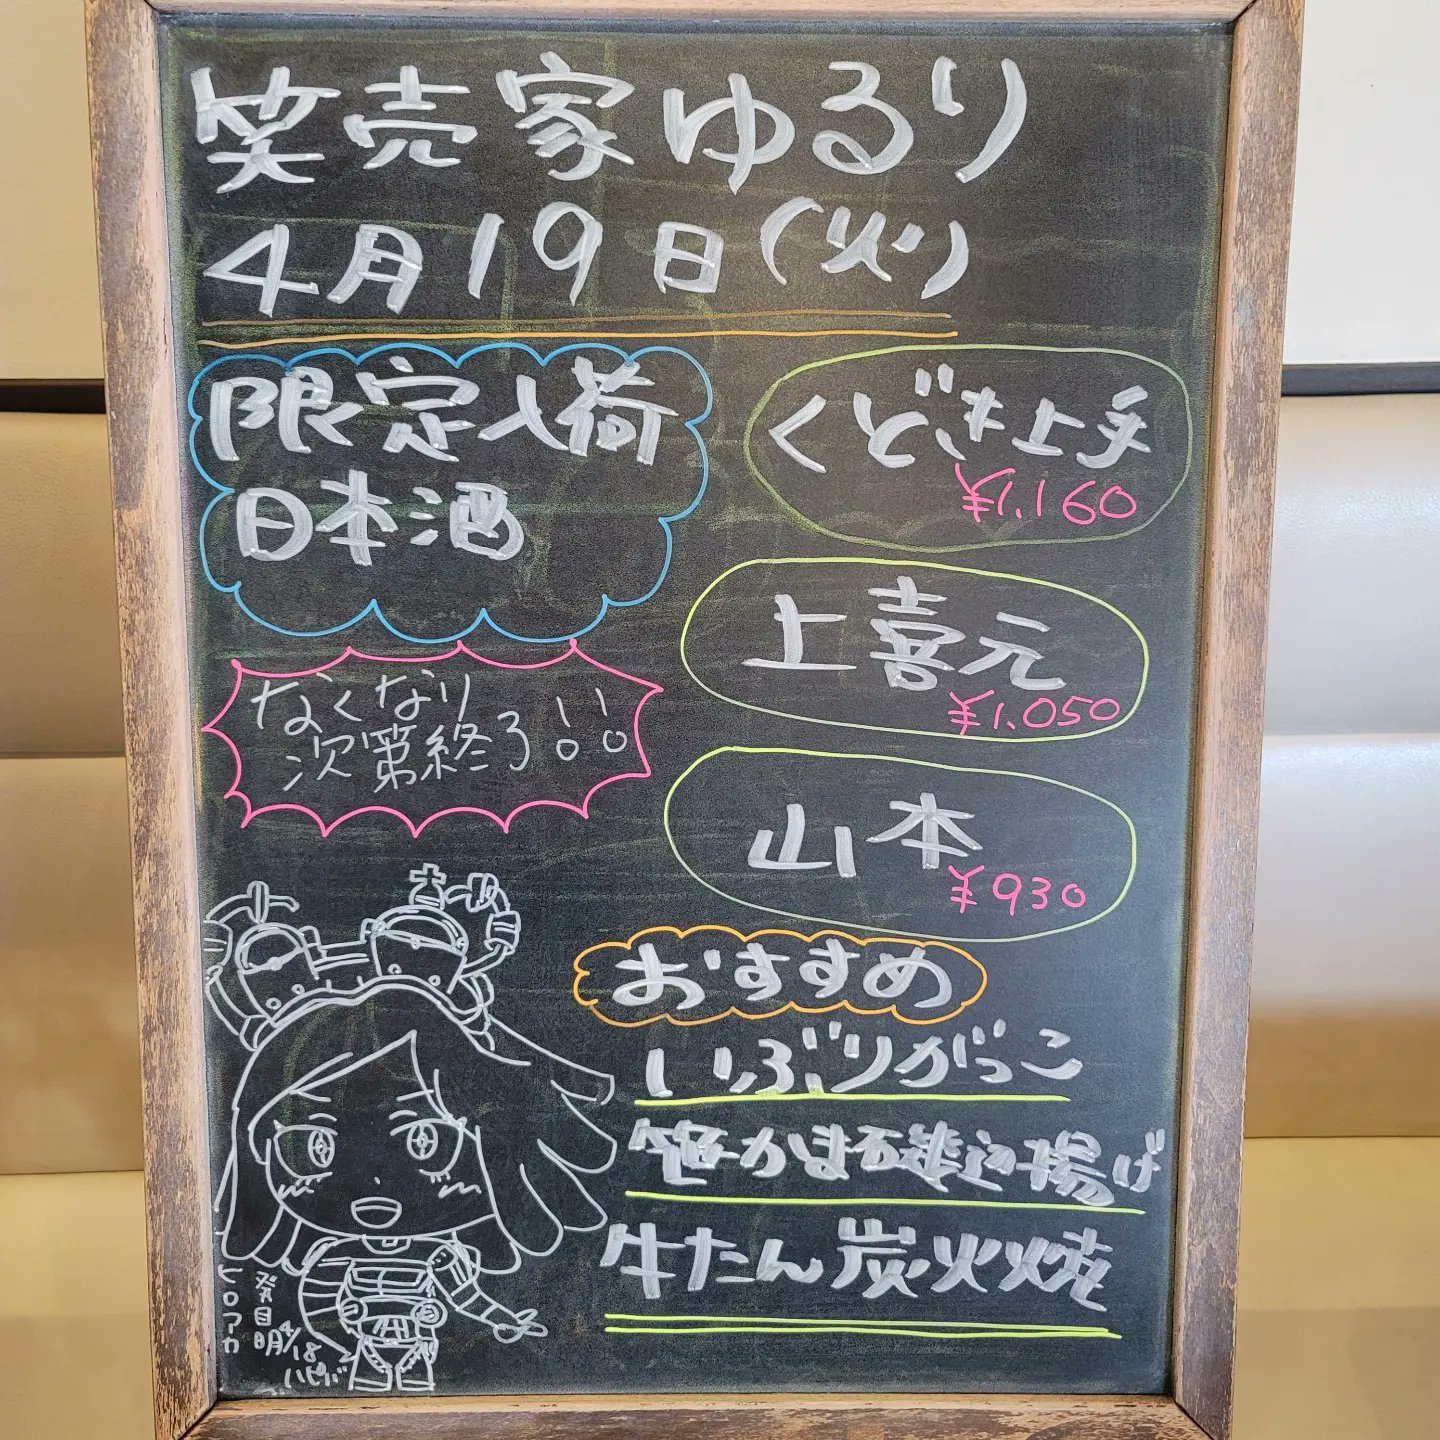 笑売家ゆるり
4月19日(火)
限定入荷
日本酒
くどき上手
¥1.160
上喜元
¥1.050
山本
¥930
なくなり
次第終了!!
おすすめ
いぶりがっこ
笹かま磯辺揚げ
牛たん炭火焼
ヒロアカ
発目明
4/18
ハピバ